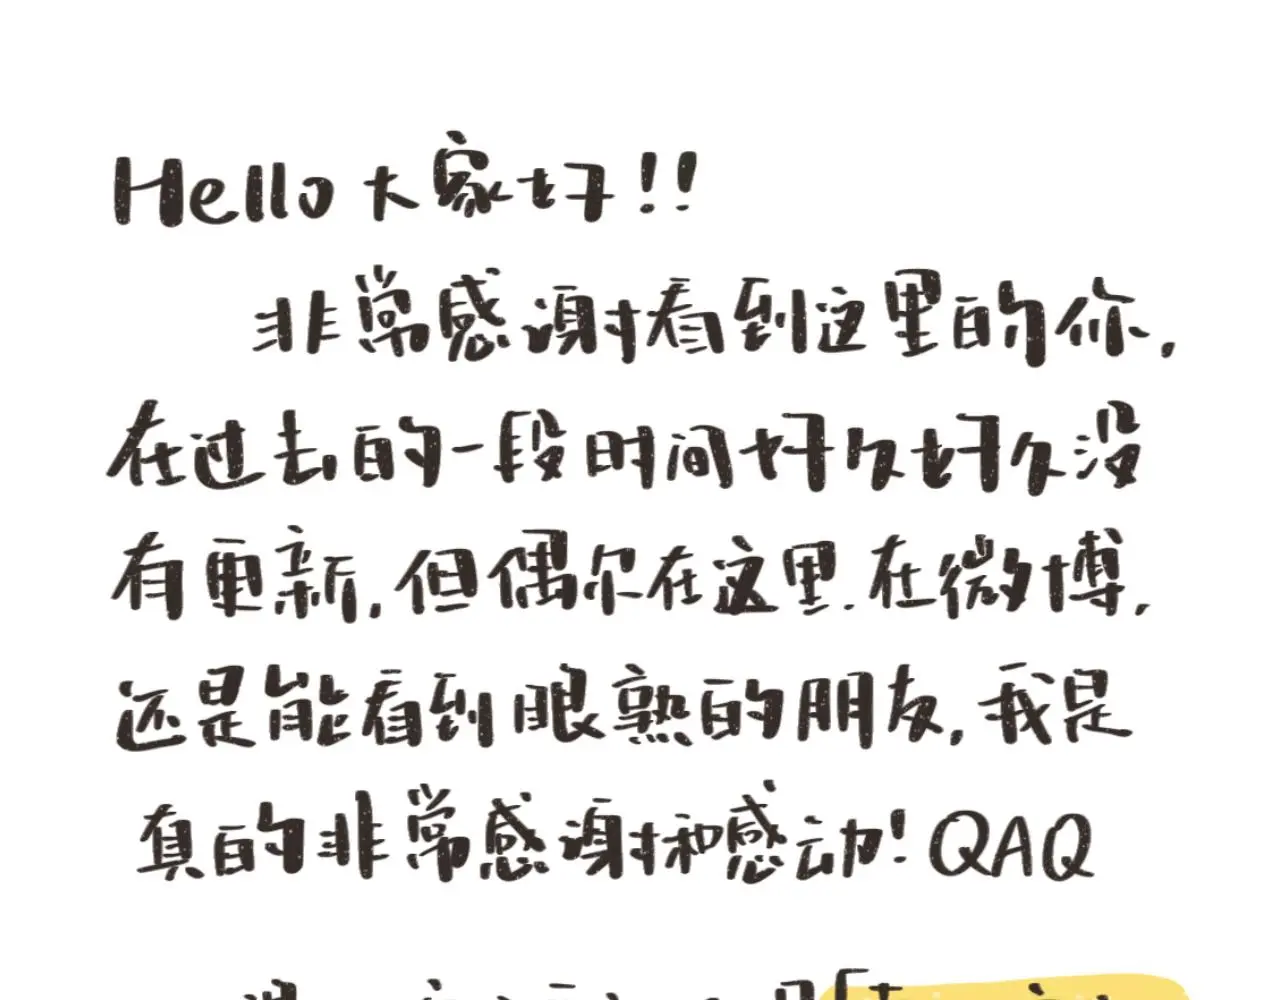 Hello大家好!!
非常感谢看到这里的你,
在过去的一段时间好久好久没
有更新,但偶尔在这里.在微博,
还是能看到眼熟的朋友,我是
真的非常感谢和感动!QAQ